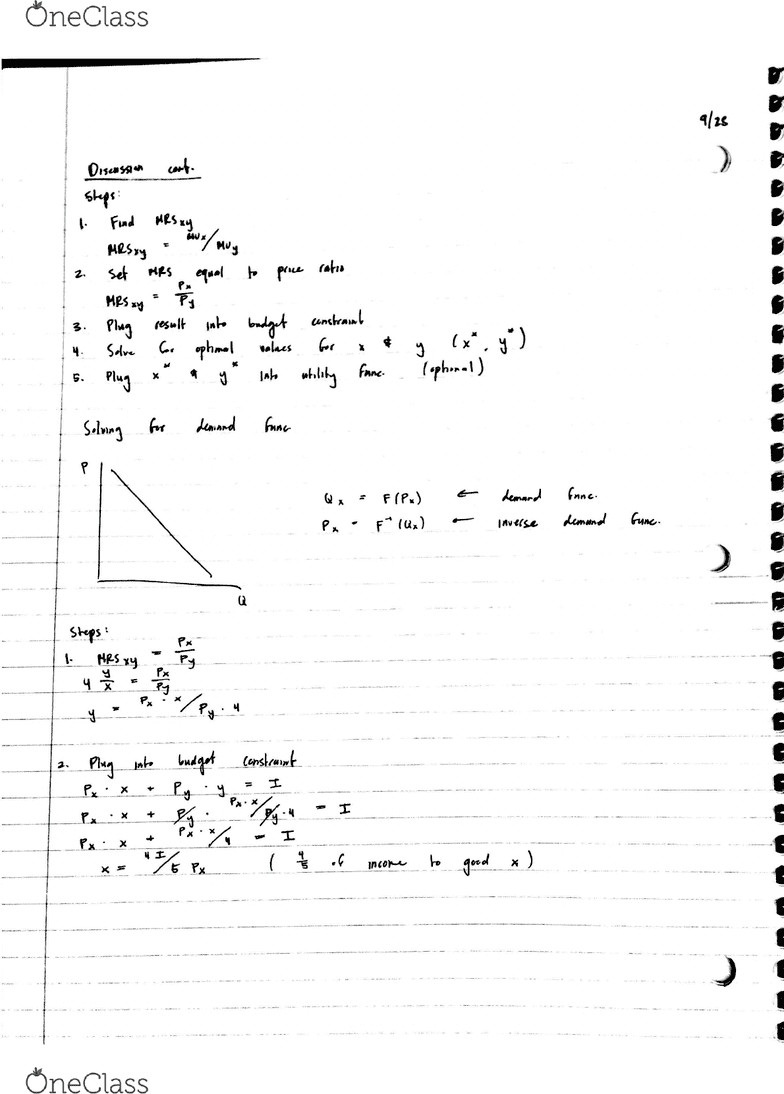 OneClass
9/28
Discussion cont.
Steps:
1. Find MRSxy
MRSxy = MUx/MUy
2. Set MRS equal to price ratio
MRSxy = Px/Py
3. Plug result into budget constraint
4. Solve for optimal values for x & y (x*, y*)
5. Plug x* & y* into utility func. (optional)
Solving for demand func
P
Qx = F(Px) ← demand func.
Px = F⁻¹(Qx) ← inverse demand func.
Q
Steps:
1. MRSxy = Px/Py
4 y/x = Px/Py
y = Px · x / Py · 4
2. Plug into budget constraint
Px · x + Py · y = I
Px · x + Py · Px · x / Py · 4 = I
Px · x + Px · x / 4 = I
x = 4I / 5 Px ( 4/5 of income to good x )
OneClass